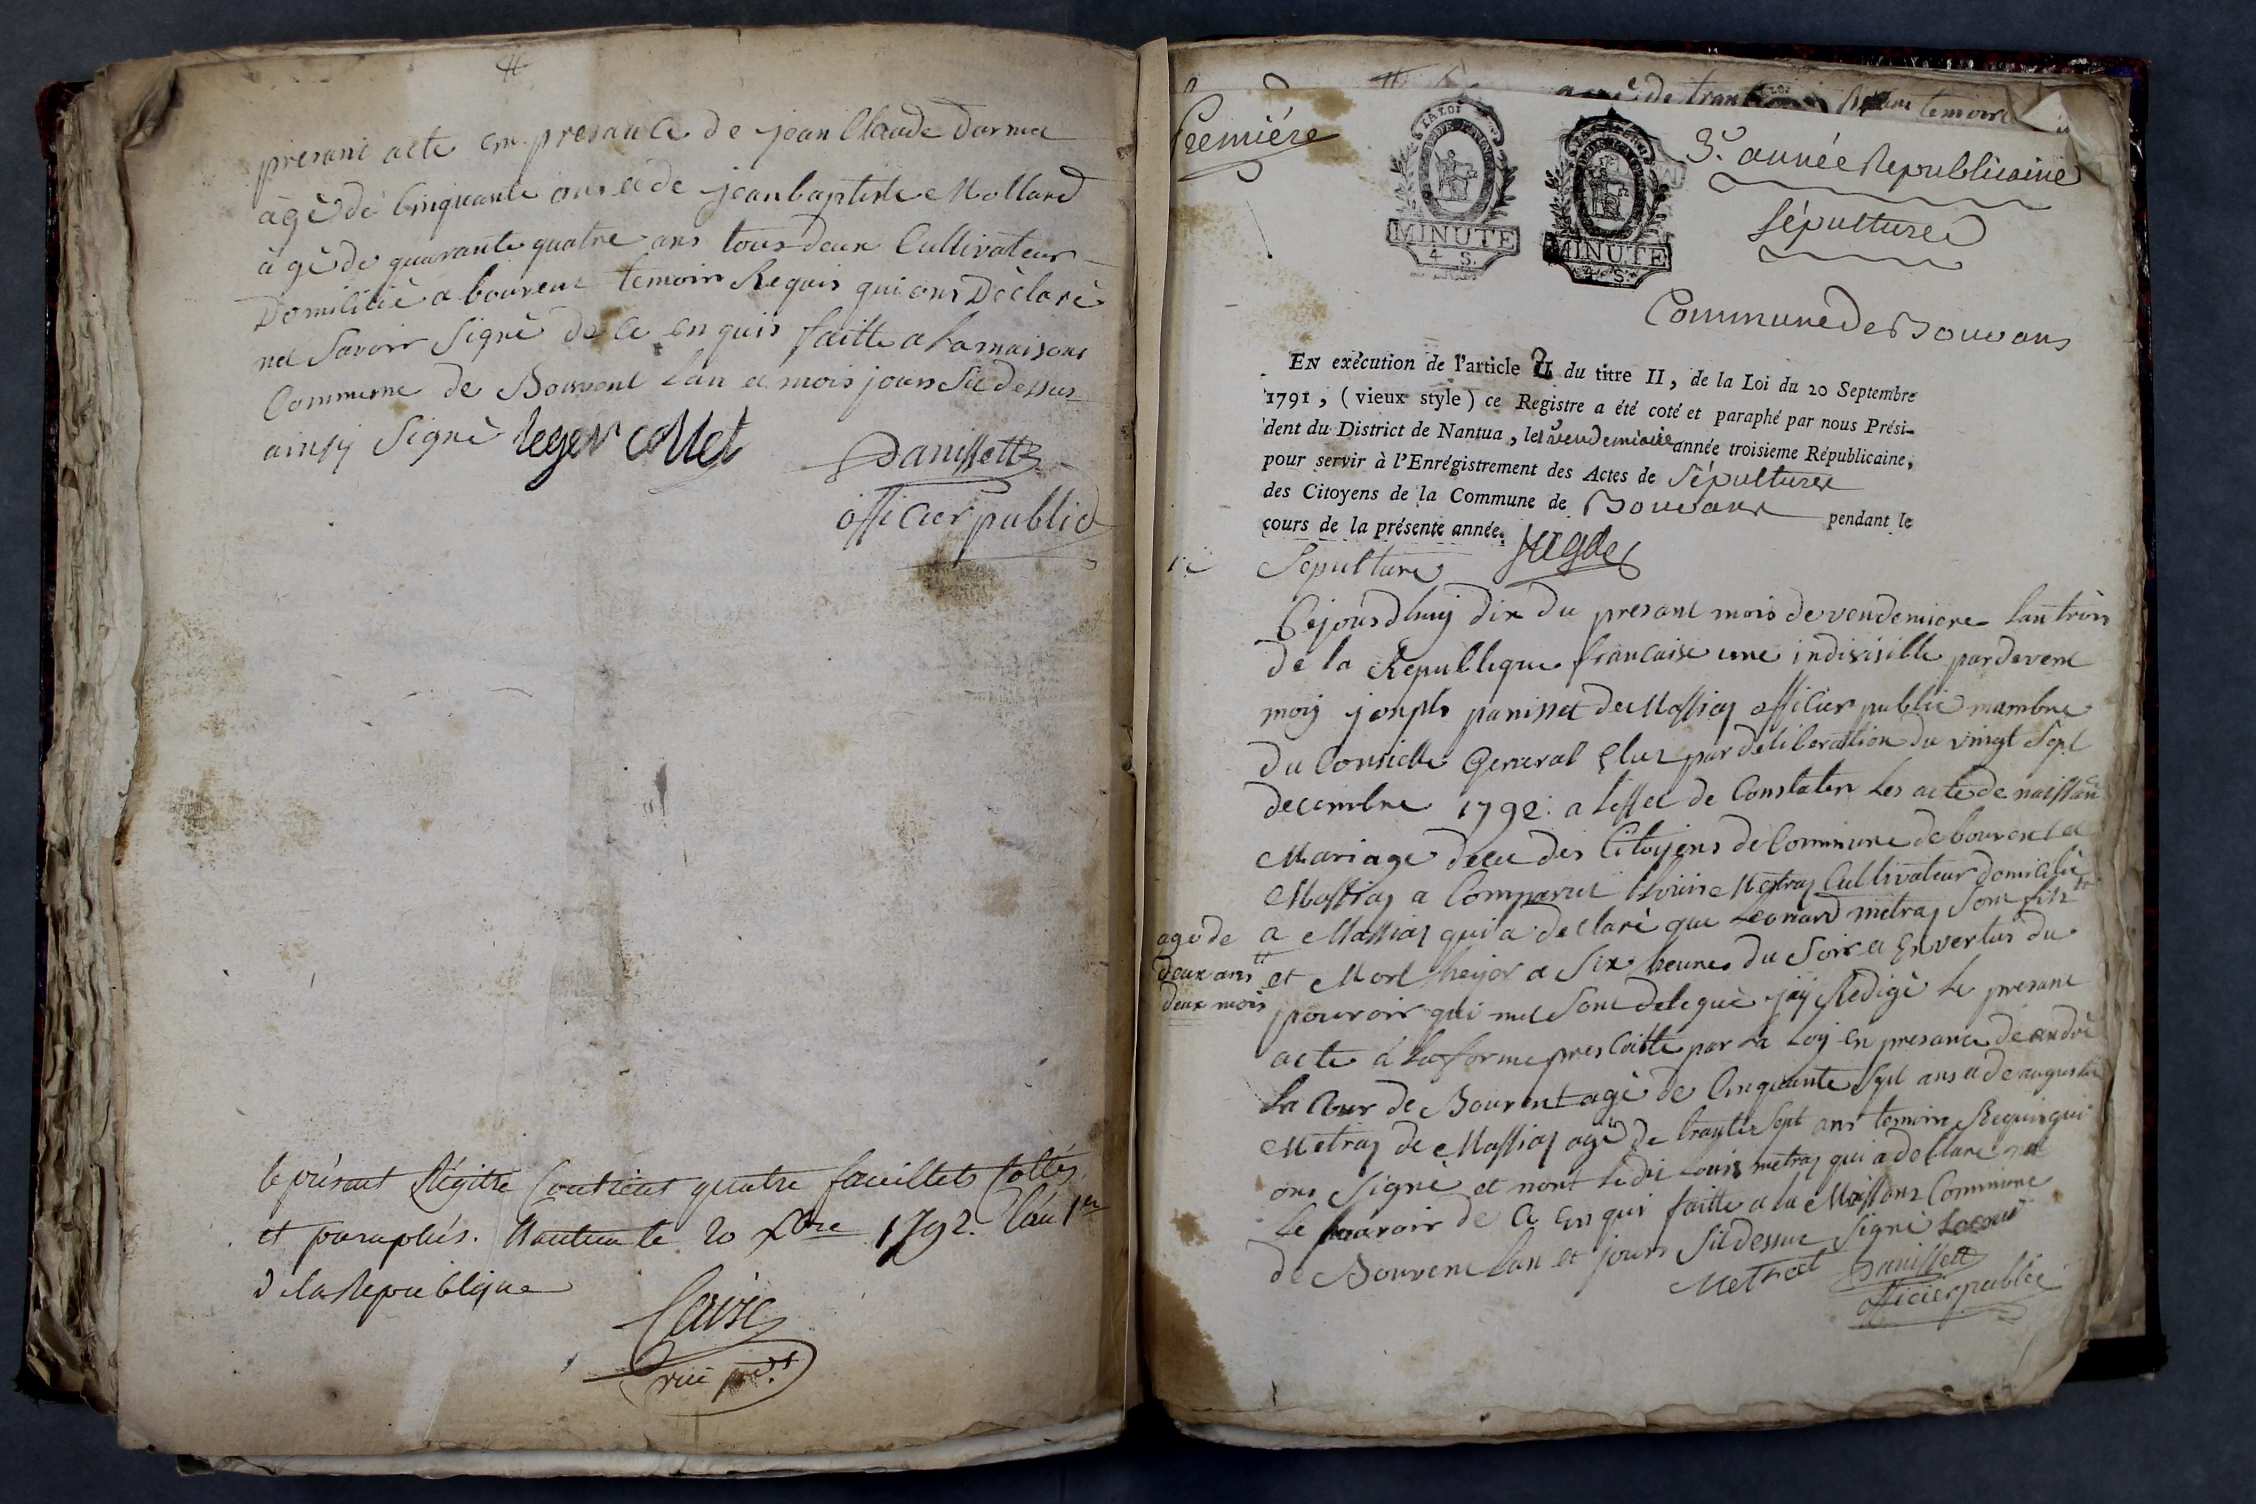 presant acte en presance de jean Claude Darmet
agè de Cinquante ans et de jean baptiste Mollard
à gè de quarante quatre ans tous deux Cultivateur
Domiciliè a bouvent temoins Requis qui ons Dèclarè
ne Savoir Signè de Ce enquis faitte a La maisons
Commune de Bouvent Lan et mois jours Sudessus
ainsy Signè leger collet
Panissett
officier public
le présent Régitre Contient quatre feuillets Cottés
et paraphés. Nantua le 20 Xbre 1792. l'an 1er
d la Republique
vice pdt.
Première
3e. année Republicaine
Sépultures
LA LOI
MINUTE
4 S.
MINUTE
4 S.
Commune de Bouvans
EN exècution de l'article II du titre II, de la Loi du 20 Septembre
1791, (vieux style) ce Registre a été coté et paraphé par nous Prési-
dent du District de Nantua, le 1 vendemiaire année troisieme Républicaine,
pour servir à l'Enrégistrement des Actes de Sépultures
des Citoyens de la Commune de Bouvans pendant le
cours de la présente année.
1e Sepulture
Cejourdhuy dix du presant mois de vendemiere Lan trois
de la Republique francaise une indivisible pardevent
moy joseph panisset de Massiaz officier public mambre
du Conseille General Elus par deliberation du vingt Sept
decembre 1792. a leffet de Constater Les acte de naissance
Mariage decee des Citoyens de Commune de bouvent et
Massiaz a Comparut Louis Metraz Cultivateur domiciliè
a Massiaz qui a declarè que Leonard metraz Son fils
agè de
deux ans
deux mois
et Mort heyer a Six heures du Soir et En vertus du
pouvoir qui me Sont deleguè jay Redigè Le presant
acte à La forme prescritte par La Loy en presance de andrè
La Cour de Bouvent agè de Cinquante Sept ans et de augustin
Metraz de Massiaz agè de trante Sept ans temoins Requis qui
ons Signè et nont Ledit Louis metraz qui a declare ne
Le savoir de Ce enquis faitte a la Maissons Commune
de Bouvent Lan et jours Sudessus Signè Lacour
Metrat Panissett
officier public